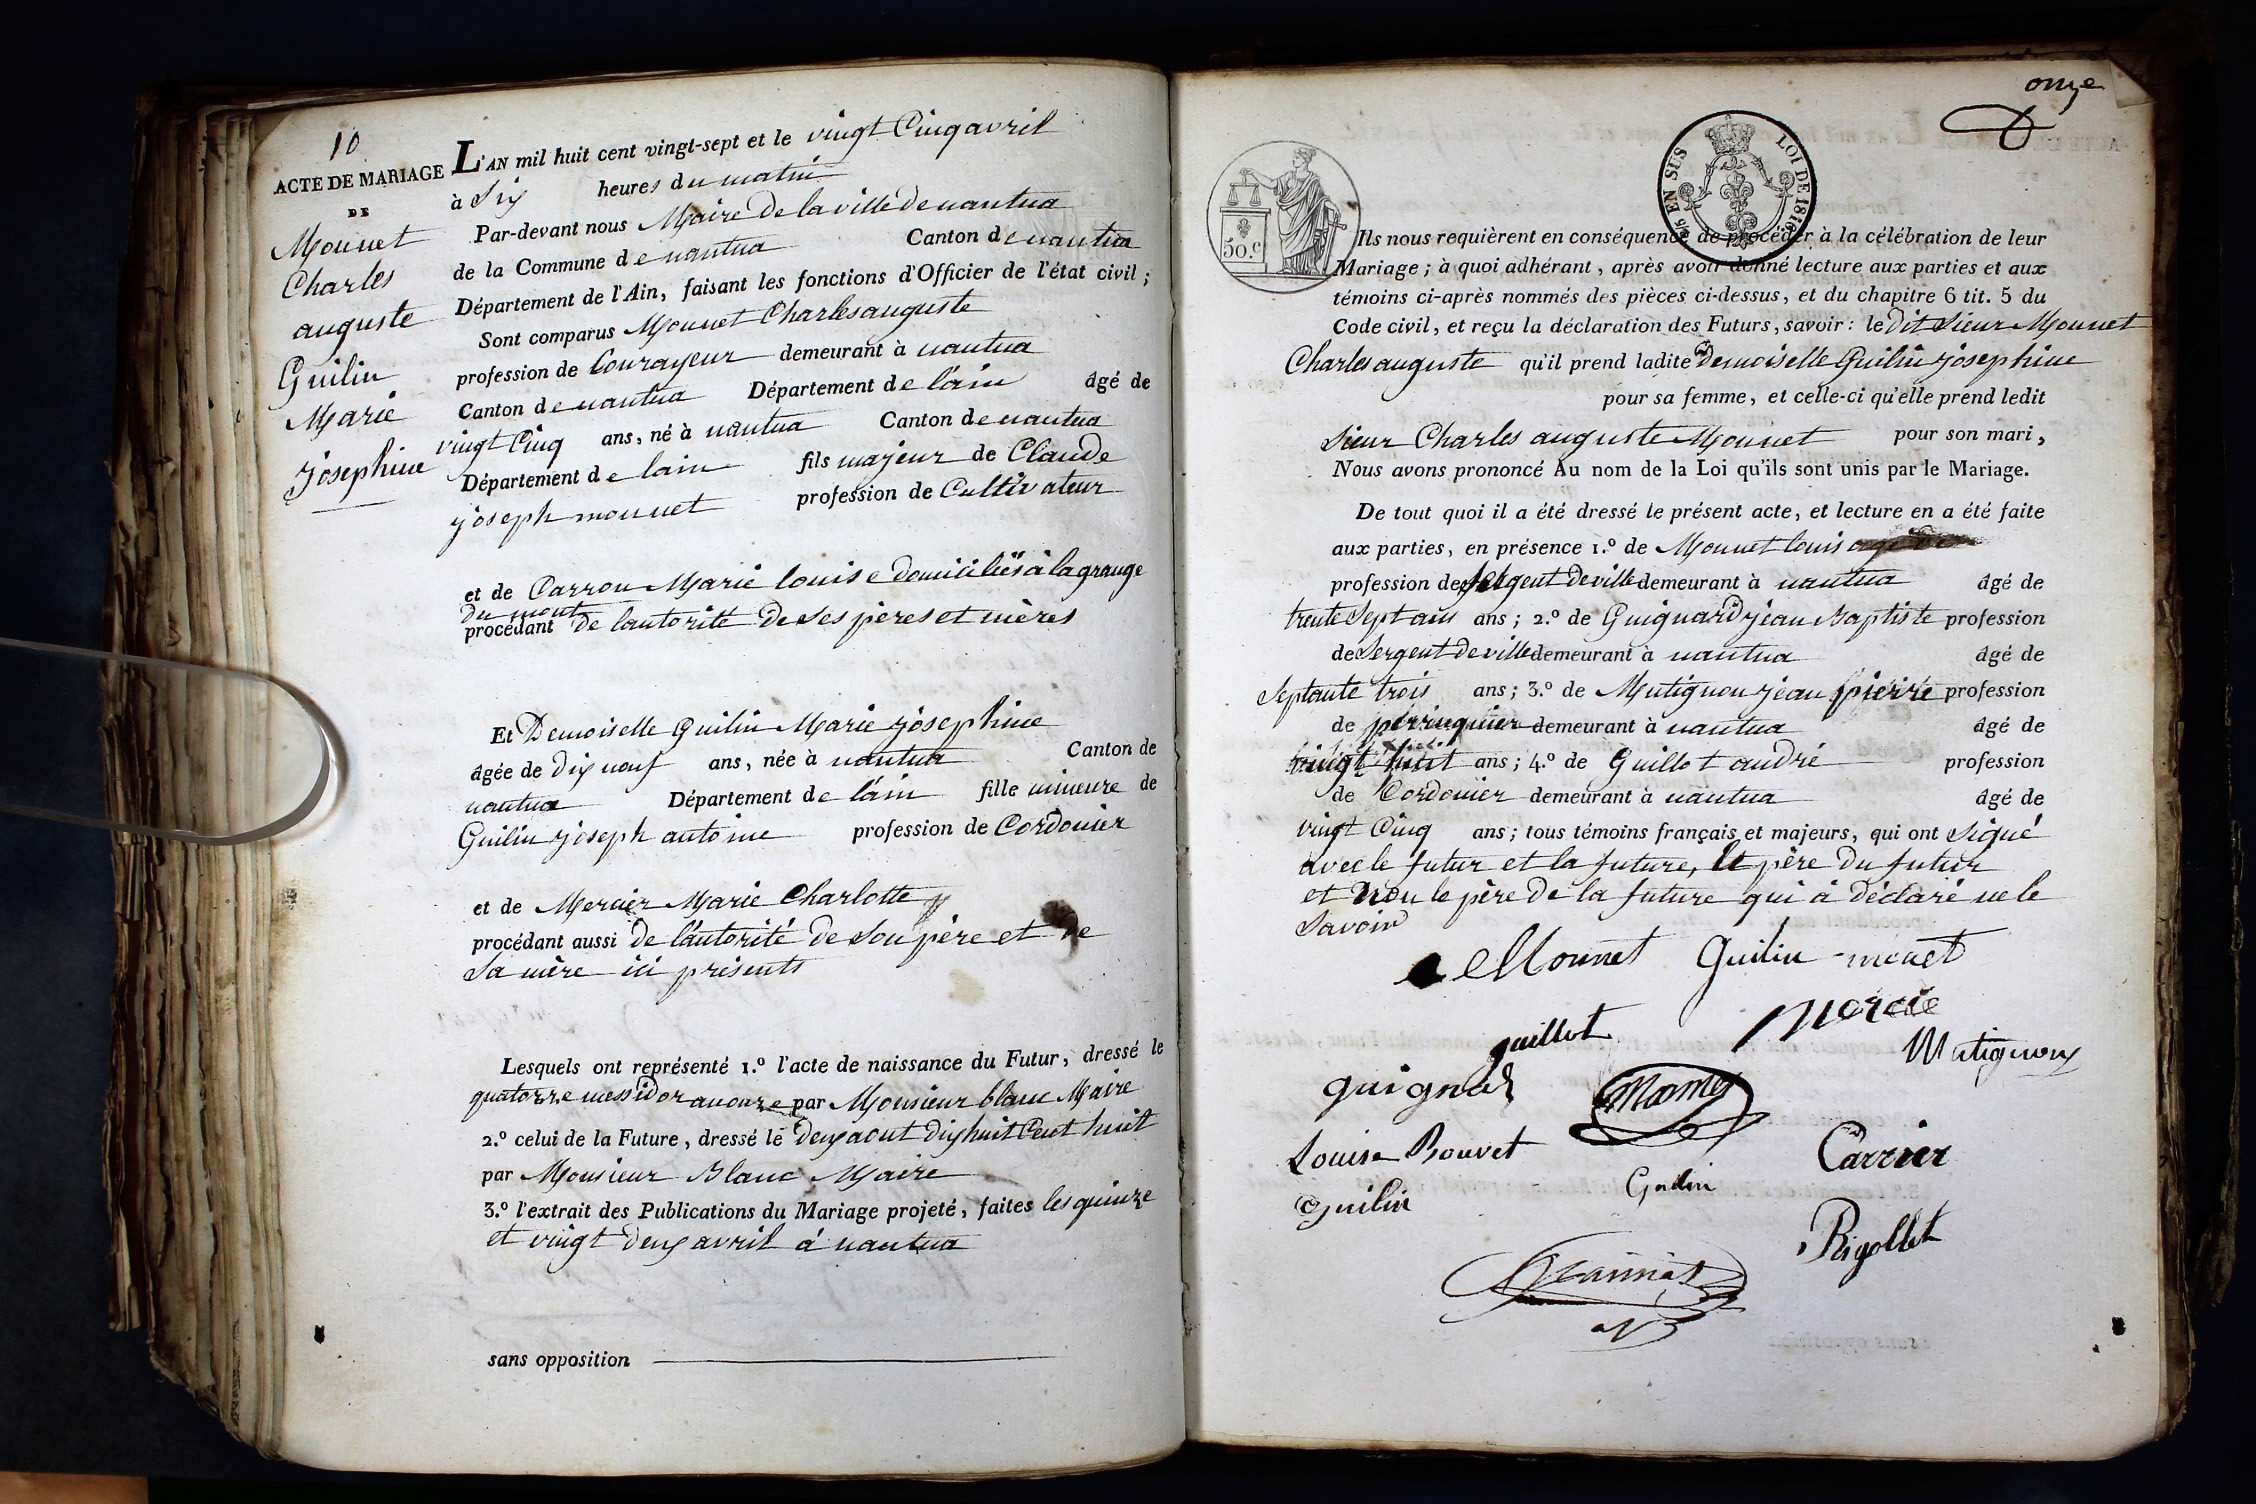 10
ACTE DE MARIAGE
DE
Monnet
Charles
auguste
Guilin
Marie
josephine
L'AN mil huit cent vingt-sept et le vingt Cinq avril
à Six heures du matin
Par-devant nous Maire de la ville de nantua
de la Commune de nantua Canton de nantua
Département de l'Ain, faisant les fonctions d'Officier de l'état civil ;
Sont comparus Monnet Charles auguste
profession de Courayeur demeurant à nantua
Canton de nantua Département de l'ain âgé de
vingt Cinq ans, né à nantua Canton de nantua
Département de lain fils majeur de Claude
joseph monnet profession de Cultivateur
et de Carron Marie louise domiciliés à la grange
du mont
procédant de lautorité de ses pères et mères
Et Demoiselle Guilin Marie josephine
âgée de dix neuf ans, née à nantua Canton de
nantua Département de l'ain fille mineure de
Guilin joseph antoine profession de Cordonier
et de Mercier Marie Charlotte
procédant aussi de l'autorité de son père et de
sa mère ici présents
Lesquels ont représenté 1.º l'acte de naissance du Futur, dressé le
quatorze messidor an onze par Monsieur blanc Maire
2.º celui de la Future, dressé le deux aout dix huit Cent huit
par Monsieur Blanc Maire
3.º l'extrait des Publications du Mariage projeté, faites les quinze
et vingt deux avril à nantua
sans opposition
onze
50.c
EN SUS LOI DE 1816
Ils nous requièrent en conséquence de procéder à la célébration de leur
Mariage ; à quoi adhérant, après avoir donné lecture aux parties et aux
témoins ci-après nommés des pièces ci-dessus, et du chapitre 6 tit. 5 du
Code civil, et reçu la déclaration des Futurs, savoir : le dit Sieur Monnet
Charles auguste qu'il prend ladite Demoiselle Guilin josephine
pour sa femme, et celle-ci qu'elle prend ledit
Sieur Charles auguste Monnet pour son mari,
Nous avons prononcé Au nom de la Loi qu'ils sont unis par le Mariage.
De tout quoi il a été dressé le présent acte, et lecture en a été faite
aux parties, en présence 1.º de Monnet louis
profession de Sergent de ville demeurant à nantua âgé de
trente Sept ans ans ; 2.º de Guignard jean Baptiste profession
de Sergent de ville demeurant à nantua âgé de
Septante trois ans ; 3.º de Mutignon jean pierre profession
de perruquier demeurant à nantua âgé de
vingt huit ans ; 4.º de Guillot andré profession
de Cordonier demeurant à nantua âgé de
vingt Cinq ans ; tous témoins français et majeurs, qui ont signé
avec le futur et la future, le père du futur
et non le père de la future qui à déclaré ne le
savoir
Monnet Guilin monet
guillot mercié
Mutignon
guignard
Louise Bouvet Carrier
Guilin Godin
Rigollet